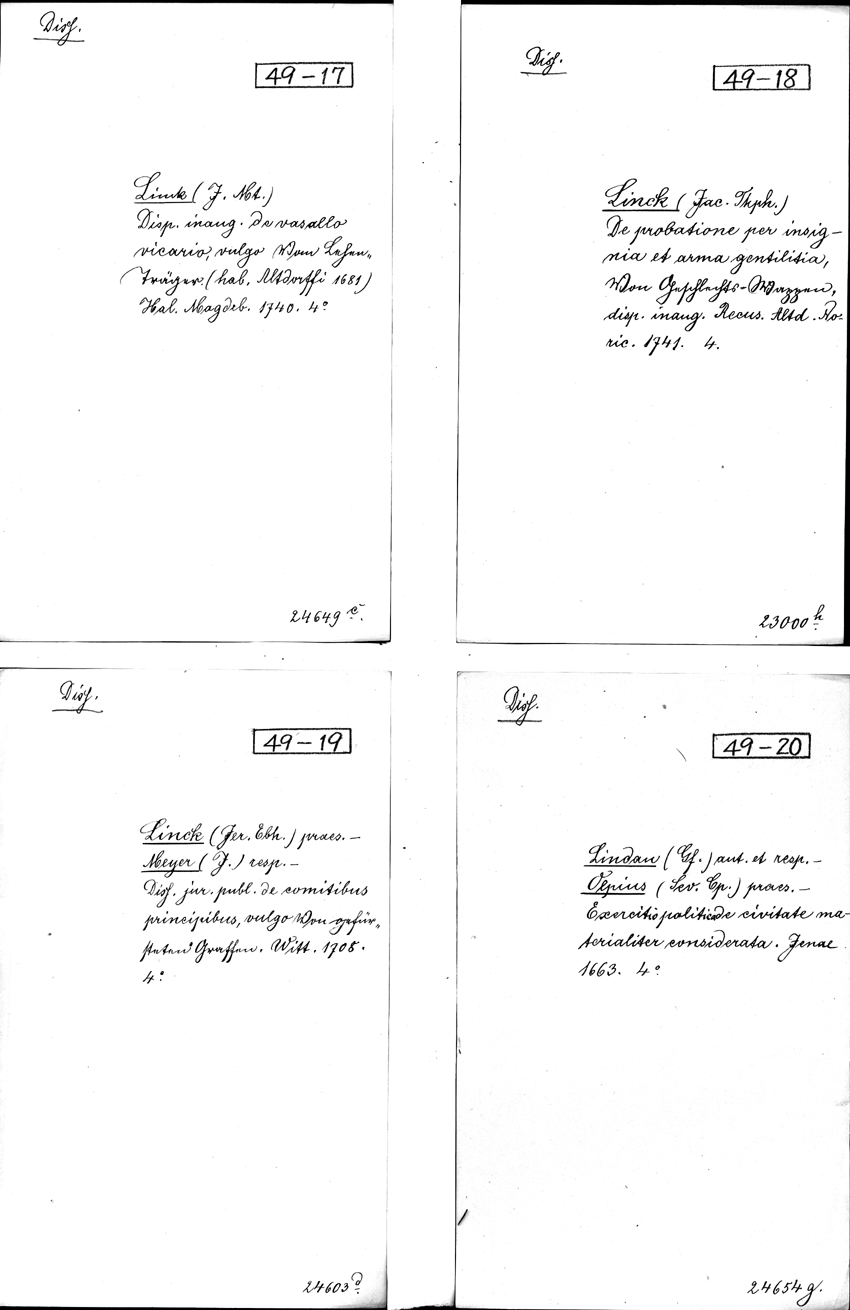 Diss.
49-17
Linck (J. Abt.)
Disp. inaug. de vasallo
vicario, vulgo Vom Lehen„
Träger. (hab. Altdorffi 1681)
Hal. Magdeb. 1740. 4°
24649 c.
Diss.
49-18
Linck (Jac. Thph.)
De probatione per insig-
nia et arma gentilitia,
Von Geschlechts-Wappen,
disp. inaug. Recus. Altd. No-
ric. 1741. 4.
23000 h
Diss.
49-19
Linck (Jer. Ebh.) praes. –
Meyer (J.) resp. –
Diss. jur. publ. de comitibus
principibus, vulgo Von gefür„
steten Graffen. Witt. 1708.
4°
24603 d
Diss.
49-20
Lindau (Gf.) aut. et resp. –
Olpius (Sev. Cp.) praes. –
Exercitio politica de civitate ma-
terialiter considerata. Jenae
1663. 4°
24654 g.